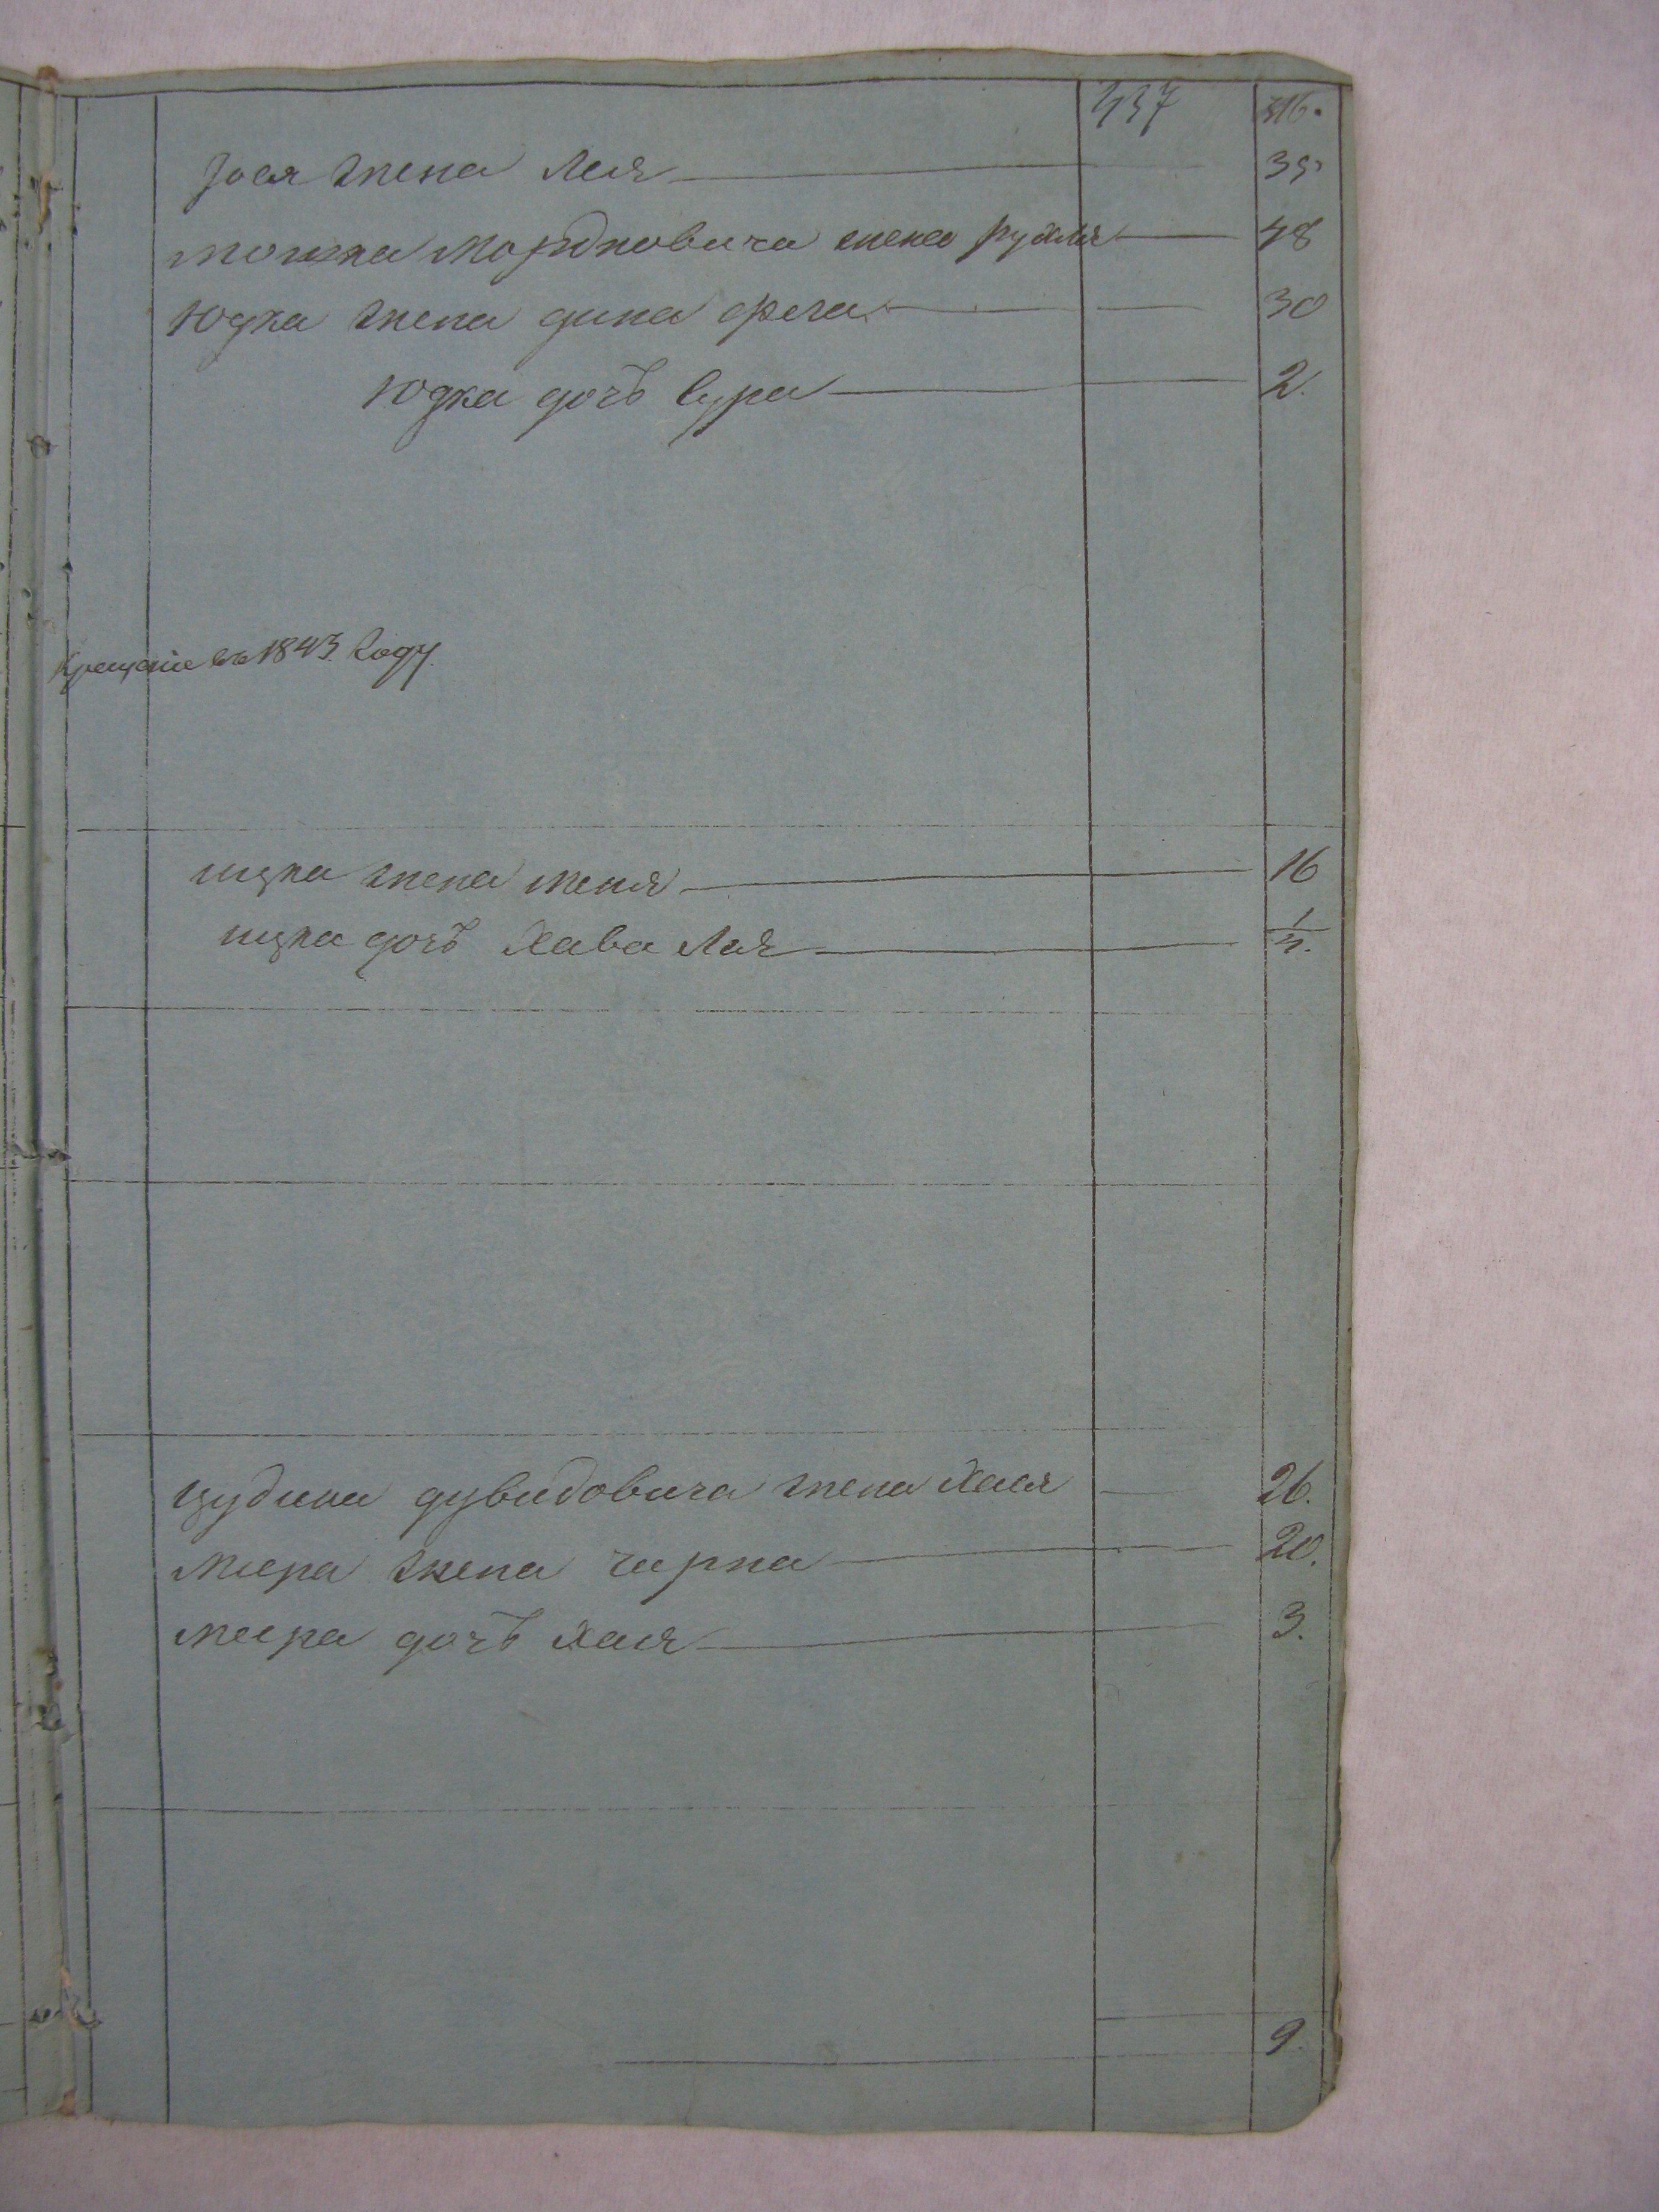 437 316.
Іося жена Лея 35
Мошка Мордковича жена Рухля 48
Юдка жена Дина Фрега 30
Юдка дочь Сура 2.
въ 1843 Году
Ицка жена Меня 16
Ицка дочь Хава Лея 1/2.
Дувидовича жена Хая 26.
Меера жена Чарна 20.
Меера дочь Хая 3.
9.